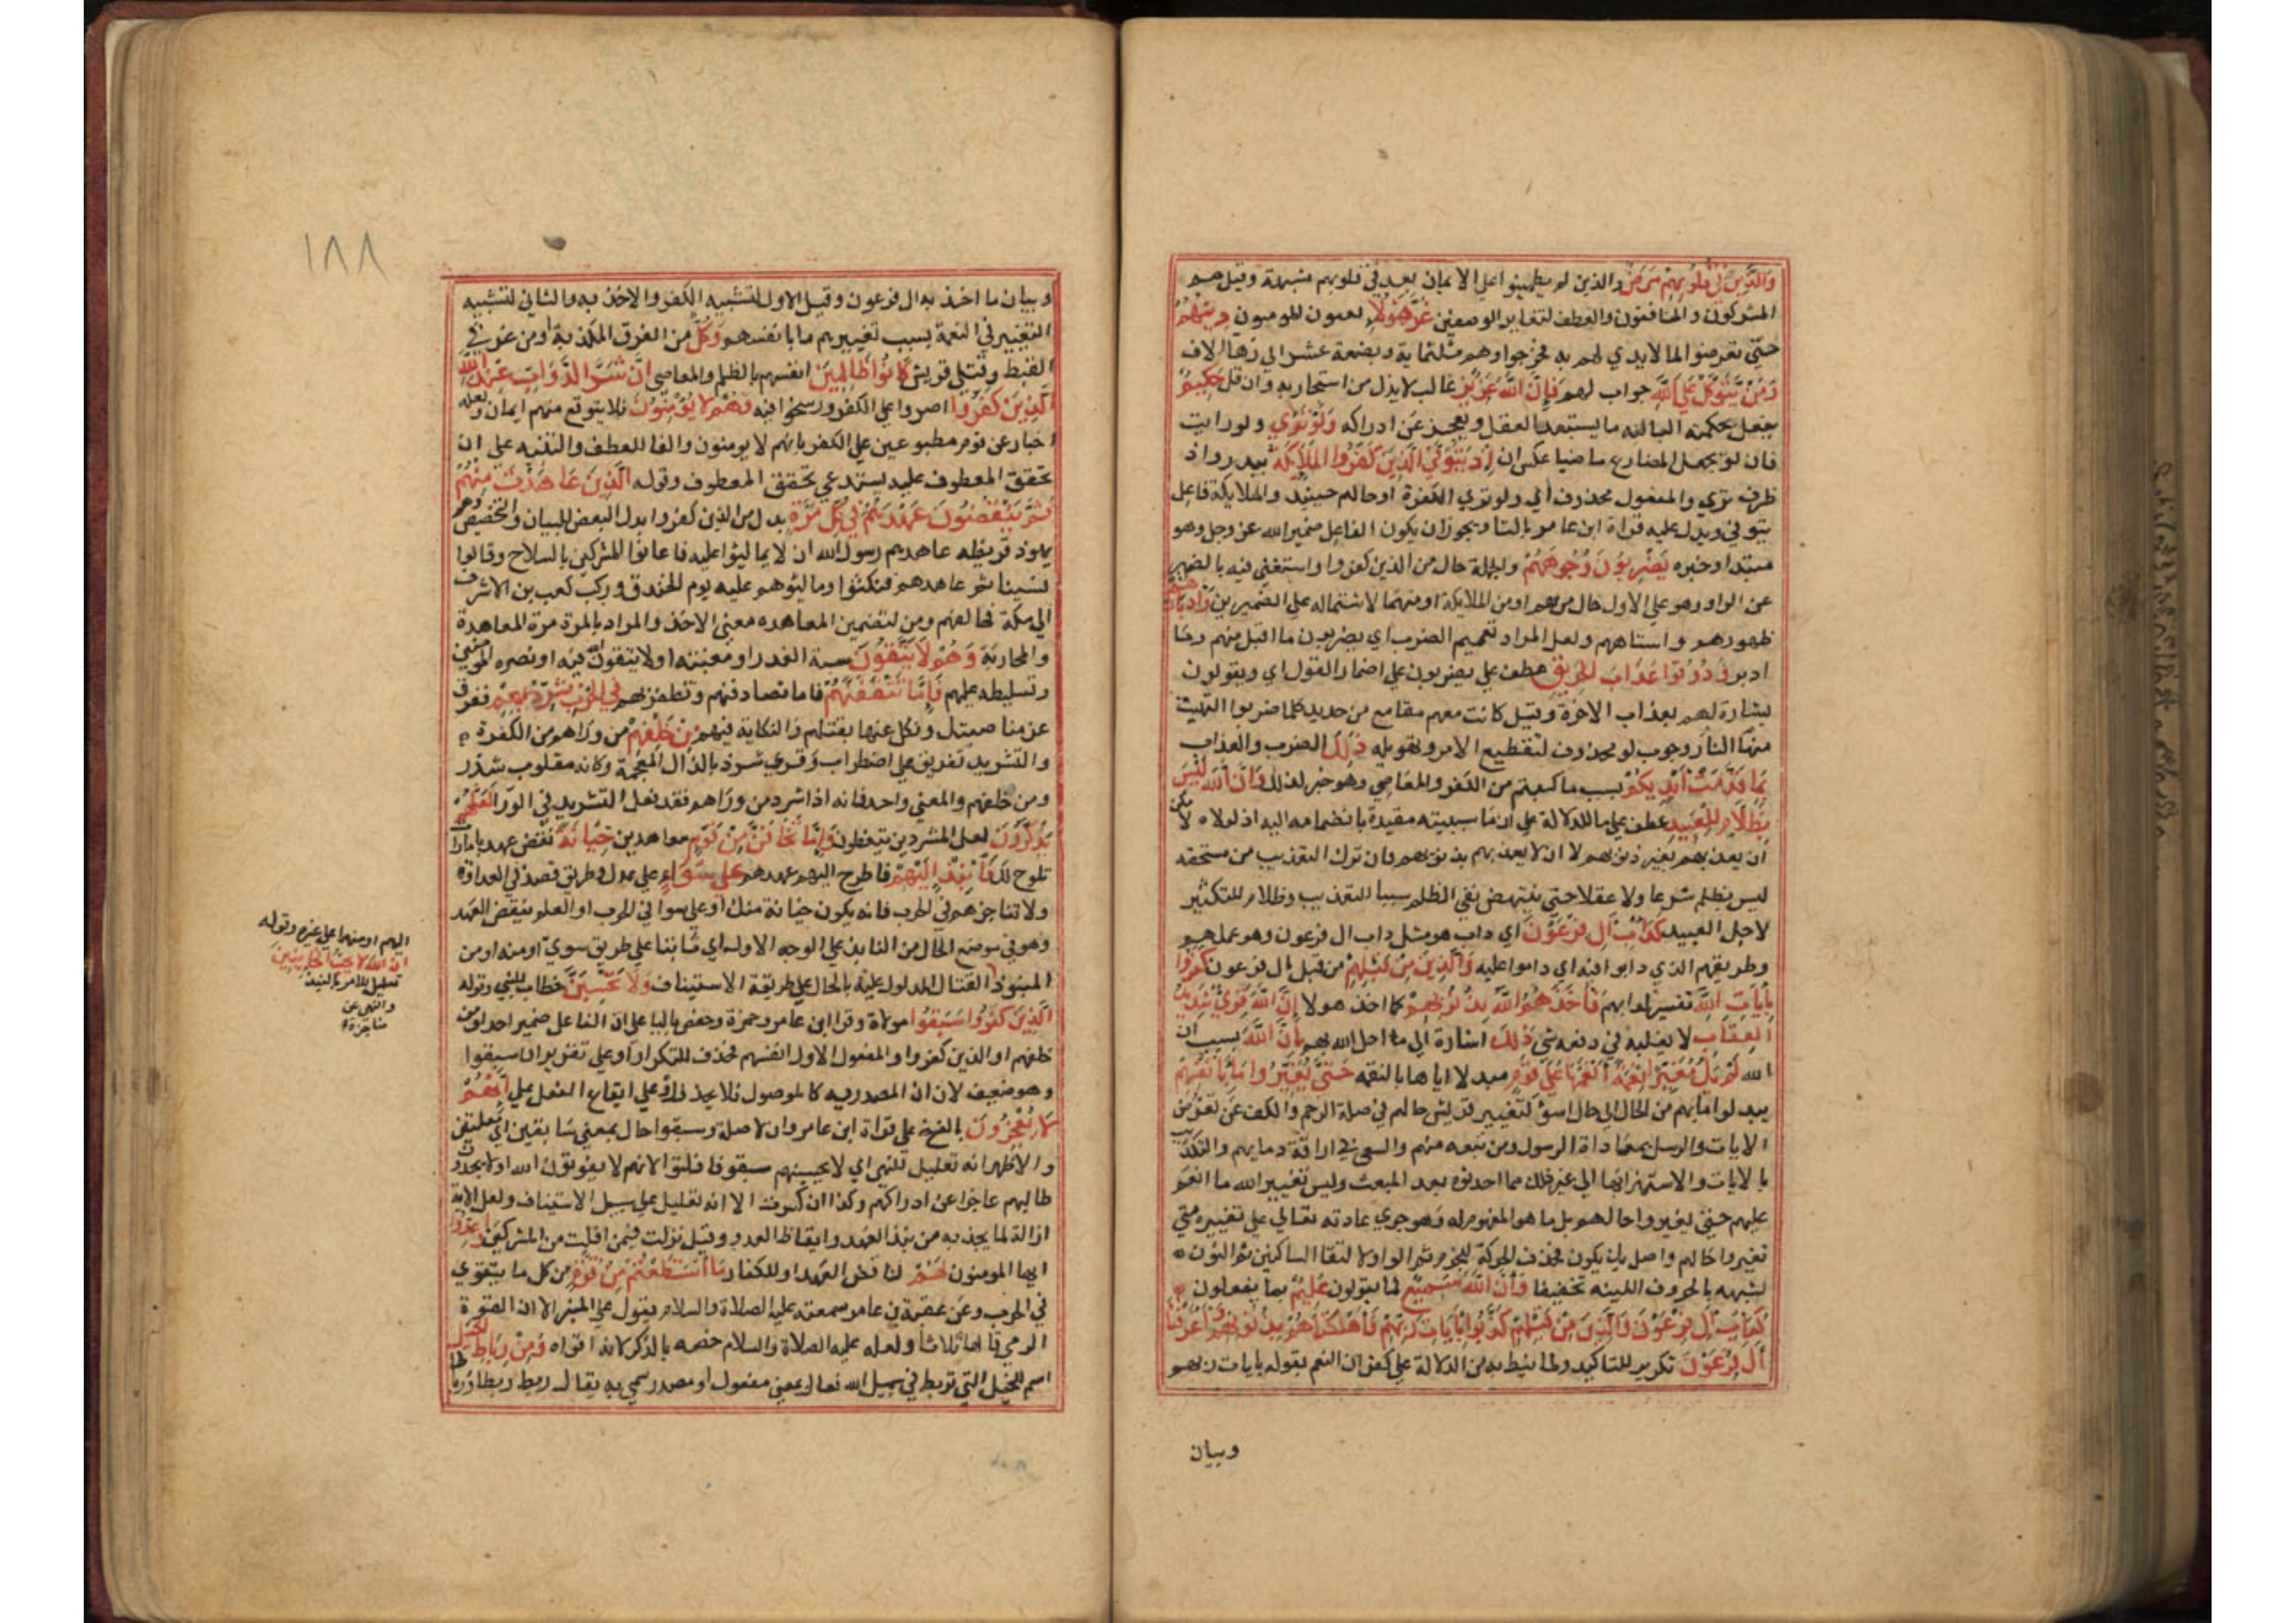 وَالَّذِينَ فِي قُلُوبِهِمْ مَرَضٌ والذين لم يطمينوا علي الايمان بعد في قلوبهم شبهة وقيل هم
المشركون والمنافقون والعطف لتغاير الوصفين غَرَّ هَؤُلَاءِ يعنون المومنون دِينُهُمْ
حتي تعرضوا لما لا يدي لهم به فخرجوا وهم ثلثماية وبضعة عشر الي زها الاف
وَمَنْ يَتَوَكَّلْ عَلَى اللَّهِ جواب لهم فَإِنَّ اللَّهَ عَزِيزٌ غالب لا يذل من استجار به وان قل حَكِيمٌ
يفعل بحكمته البالغه ما يستبعده العقل ويعجز عن ادراكه وَلَوْ تَرَي ولو رايت
فان لو تجعل المضارع ماضيا عكس ان إِذْ يَتَوَفَّي الَّذِينَ كَفَرُوا الْمَلَائِكَةُ ببدر واذ
ظرف تري والمفعول محذوف اي ولو تري الكفرة او حالهم حينيد والملايكة فاعل
يتوفي ويدل عليه قراة ابن عامر بالتا ويجوز ان يكون الفاعل ضمير الله عز وجل وهو
مبتدا وخبره يَضْرِبُونَ وُجُوهَهُمْ والجملة حال من الذين كفروا واستغني فيه بالضمير
عن الواو وهو علي الاول حال منهم او من الملايكة او منهما لاشتماله علي الضميرين وَأَدْبَارَهُمْ
ظهورهم واستاههم ولعل المراد تعميم الضرب اي يضربون ما اقبل منهم وما
ادبر وَذُوقُوا عَذَابَ الْحَرِيقِ عطف علي يضربون علي اضمار القول اي ويقولون
بشارة لهم بعذاب الاخرة وقيل كانت معهم مقامع من حديد كلما ضربوا التهبت
منها النار وجوب لو محذوف لتفظيع الامر وتهويله ذَلِكَ الضرب والعذاب
بِمَا قَدَّمَتْ أَيْدِيكُمْ بسبب ما كسبتم من الكفر والمعاصي وهو خبر لذلك وَأَنَّ اللَّهَ لَيْسَ
بِظَلَّامٍ لِلْعَبِيدِ عطف علي ما للدلالة علي ان ما سببيته مقيدة بانضمامه اليه اذ لولاه لا مكن
ان يعذبهم بغير ذنوبهم لا ان لا يعذبهم بذنوبهم فان ترك التعذيب من مستحقه
ليس بظلم شرعا ولا عقلا حتي ينتهض نفي الظلم سببا للتعذيب وظلام للتكثير
لاجل العبيد كَدَأْبِ آلِ فِرْعَوْنَ اي داب هو مثل داب ال فرعون وهو عملهم
وطريقهم الذي دابوا فيه اي داموا عليه وَالَّذِينَ مِنْ قَبْلِهِمْ من قبل ال فرعون كَفَرُوا
بِآيَاتِ اللَّهِ تفسير لدابهم فَأَخَذَهُمُ اللَّهُ بِذُنُوبِهِمْ كما اخذ هولا إِنَّ اللَّهَ قَوِيٌّ شَدِيدُ
الْعِقَابِ لا يغلبه في دفعه شي ذَلِكَ اشارة الي ما احل الله بهم بِأَنَّ اللَّهَ بسبب ان
الله لَمْ يَكُ مُغَيِّرًا نِعْمَةً أَنْعَمَهَا عَلَي قَوْمٍ مبدلا اياها بالنقمه حَتَّي يُغَيِّرُوا مَا بِأَنْفُسِهِمْ
يبدلوا ما بهم من الحال الي حال اسو كتغيير قريش حالهم في صلة الرحم والكف عن تعرض
الايات والرسل بمعاداة الرسول ومن تبعه منهم والسعي في اراقة دمايهم والتكذيب
بالايات والاستهزا بها الي غير ذلك مما احدثوه بعد المبعث وليس تغيير الله ما انعم
عليهم حتي يغيروا حالهم بل ما هو المفهوم له وهو جري عادته تعالي علي تغييره متي
تغيروا حالهم واصل يك يكون فحذف الحركة للجزم ثم الواو لالتقا الساكنين ثم النون
لشبهه بالحروف اللينه تخفيفا وَأَنَّ اللَّهَ سَمِيعٌ لما يقولون عَلِيمٌ بما يفعلون
كَدَأْبِ آلِ فِرْعَوْنَ وَالَّذِينَ مِنْ قَبْلِهِمْ كَذَّبُوا بِآيَاتِ رَبِّهِمْ فَأَهْلَكْنَاهُمْ بِذُنُوبِهِمْ وَأَغْرَقْنَا
آلَ فِرْعَوْنَ تكرير للتاكيد ولما نيط به من الدلالة علي كفران النعم بقوله بايات ربهم
وبيان
١٨٨
وبيان ما اخذ به ال فرعون وقيل الاول لتشبيه الكفر والاخذ به والثاني لتشبيه
التغيير في النعمة بسبب تغييرهم ما بانفسهم وَكُلٌّ من الفرق المكذبة او من غرقي
القبط وقتلي قريش كَانُوا ظَالِمِينَ انفسهم بالظلم والمعاصي إِنَّ شَرَّ الدَّوَابِّ عِنْدَ اللَّهِ
الَّذِينَ كَفَرُوا اصروا علي الكفر ورسخوا فيه فَهُمْ لَا يُؤْمِنُونَ فلا يتوقع منهم ايمان ولعله
اخبار عن قوم مطبوعين علي الكفر بانهم لا يومنون والفا للعطف والتنبيه علي ان
تحقق المعطوف عليه يستدعي تحقق المعطوف وقوله الَّذِينَ عَاهَدْتَ مِنْهُمْ
ثُمَّ يَنْقُضُونَ عَهْدَهُمْ فِي كُلِّ مَرَّةٍ بدل من الذين كفروا بدل البعض للبيان والتخصيص وهم
يهود قريظه عاهدهم رسول الله ان لا يماليوا عليه فاعانوا المشركين بالسلاح وقالوا
نسينا ثم عاهدهم فنكثوا وماليوهم عليه يوم الخندق وركب كعب بن الاشرف
الي مكة فحالفهم ومن لتضمين المعاهده معني الاخذ والمراد بالمرة مرة المعاهدة
والمحاربة وَهُمْ لَا يَتَّقُونَ سبة الغدر او مغبته او لا يتقون الله فيه او نصره المومنين
وتسليطه عليهم فَإِمَّا تَثْقَفَنَّهُمْ فاما تصادفنهم وتظفرن بهم فِي الْحَرْبِ فَشَرِّدْ بِهِمْ ففرق
عن مناصبتك ونكل عنها بقتلهم والنكاية فيهم مِنْ خَلْفِهِمْ من وراهم من الكفرة
والتشريد تفريق علي اضطراب وقري شرذ بالذال المعجمة وكانه مقلوب شذر
ومن خلفهم والمعني واحد فانه اذا شرد من وراهم فقد فعل التشريد في الورا لَعَلَّهُمْ
يَذَّكَّرُونَ لعل المشردين يتعظون وَإِمَّا تَخَافَنَّ مِنْ قَوْمٍ معاهدين خِيَانَةً نقض عهد بامارات
تلوح لك فَانْبِذْ إِلَيْهِمْ فاطرح اليهم عهدهم عَلَي سَوَاءٍ علي عدل وطريق قصد في العداوة
ولا تناجزهم في الحرب فانه يكون خيانة منك او علي سوا في الخوف او العلم بنقض العهد
وهو في موضع الحال من النابذ علي الوجه الاول اي ثابتا علي طريق سوي او منه او من
المنبوذ
اليهم او منهما علي غيره وقوله
إِنَّ اللَّهَ لَا يُحِبُّ الْخَائِنِينَ
تعليل للامر بالنبذ
والنهي عن
مناجزة
القتال المدلول عليه بالحال علي طريقة الاستيناف وَلَا تَحْسَبَنَّ خطاب للنبي وقوله
الَّذِينَ كَفَرُوا سَبَقُوا مفعولاه وقرا ابن عامر وحمزة وحفص باليا علي ان الفاعل ضمير احد او من
خلفهم او الذين كفروا والمفعول الاول انفسهم فحذف للتكرار او علي تقدير ان سبقوا
وهو ضعيف لان ان المصدريه كالموصول فلا يحذف او علي ايقاع الفعل علي إِنَّهُمْ
لَا يُعْجِزُونَ بالفتح علي قراة ابن عامر وان لا صلة وسبقوا حال بمعني سابقين اي مفلتين
والاظهر انه تعليل للنهي اي لا تحسبنهم سبقوا فافلتوا لانهم لا يفوتون الله او لا يجدون
طالبهم عاجزا عن ادراكهم وكذا ان كسرت الا انه تعليل علي سبيل الاستيناف ولعل الاية
ازاحة لما يحذر به من نبذ العهد وايقاظ العدو وقيل نزلت فيمن افلت من المشركين وَأَعِدُّوا
ايها المومنون لَهُمْ لناقض العهد او للكفار مَا اسْتَطَعْتُمْ مِنْ قُوَّةٍ من كل ما يتقوي
في الحرب وعن عقبة بن عامر سمعته عليه الصلاة والسلام يقول علي المنبر الا ان القوة
الرمي قالها ثلاثا ولعله عليه الصلاة والسلام خصه بالذكر لانه اقواه وَمِنْ رِبَاطِ الْخَيْلِ
اسم للخيل التي تربط في سبيل الله فعال بمعني مفعول او مصدر سمي به يقال ربط ربطا ورباطا